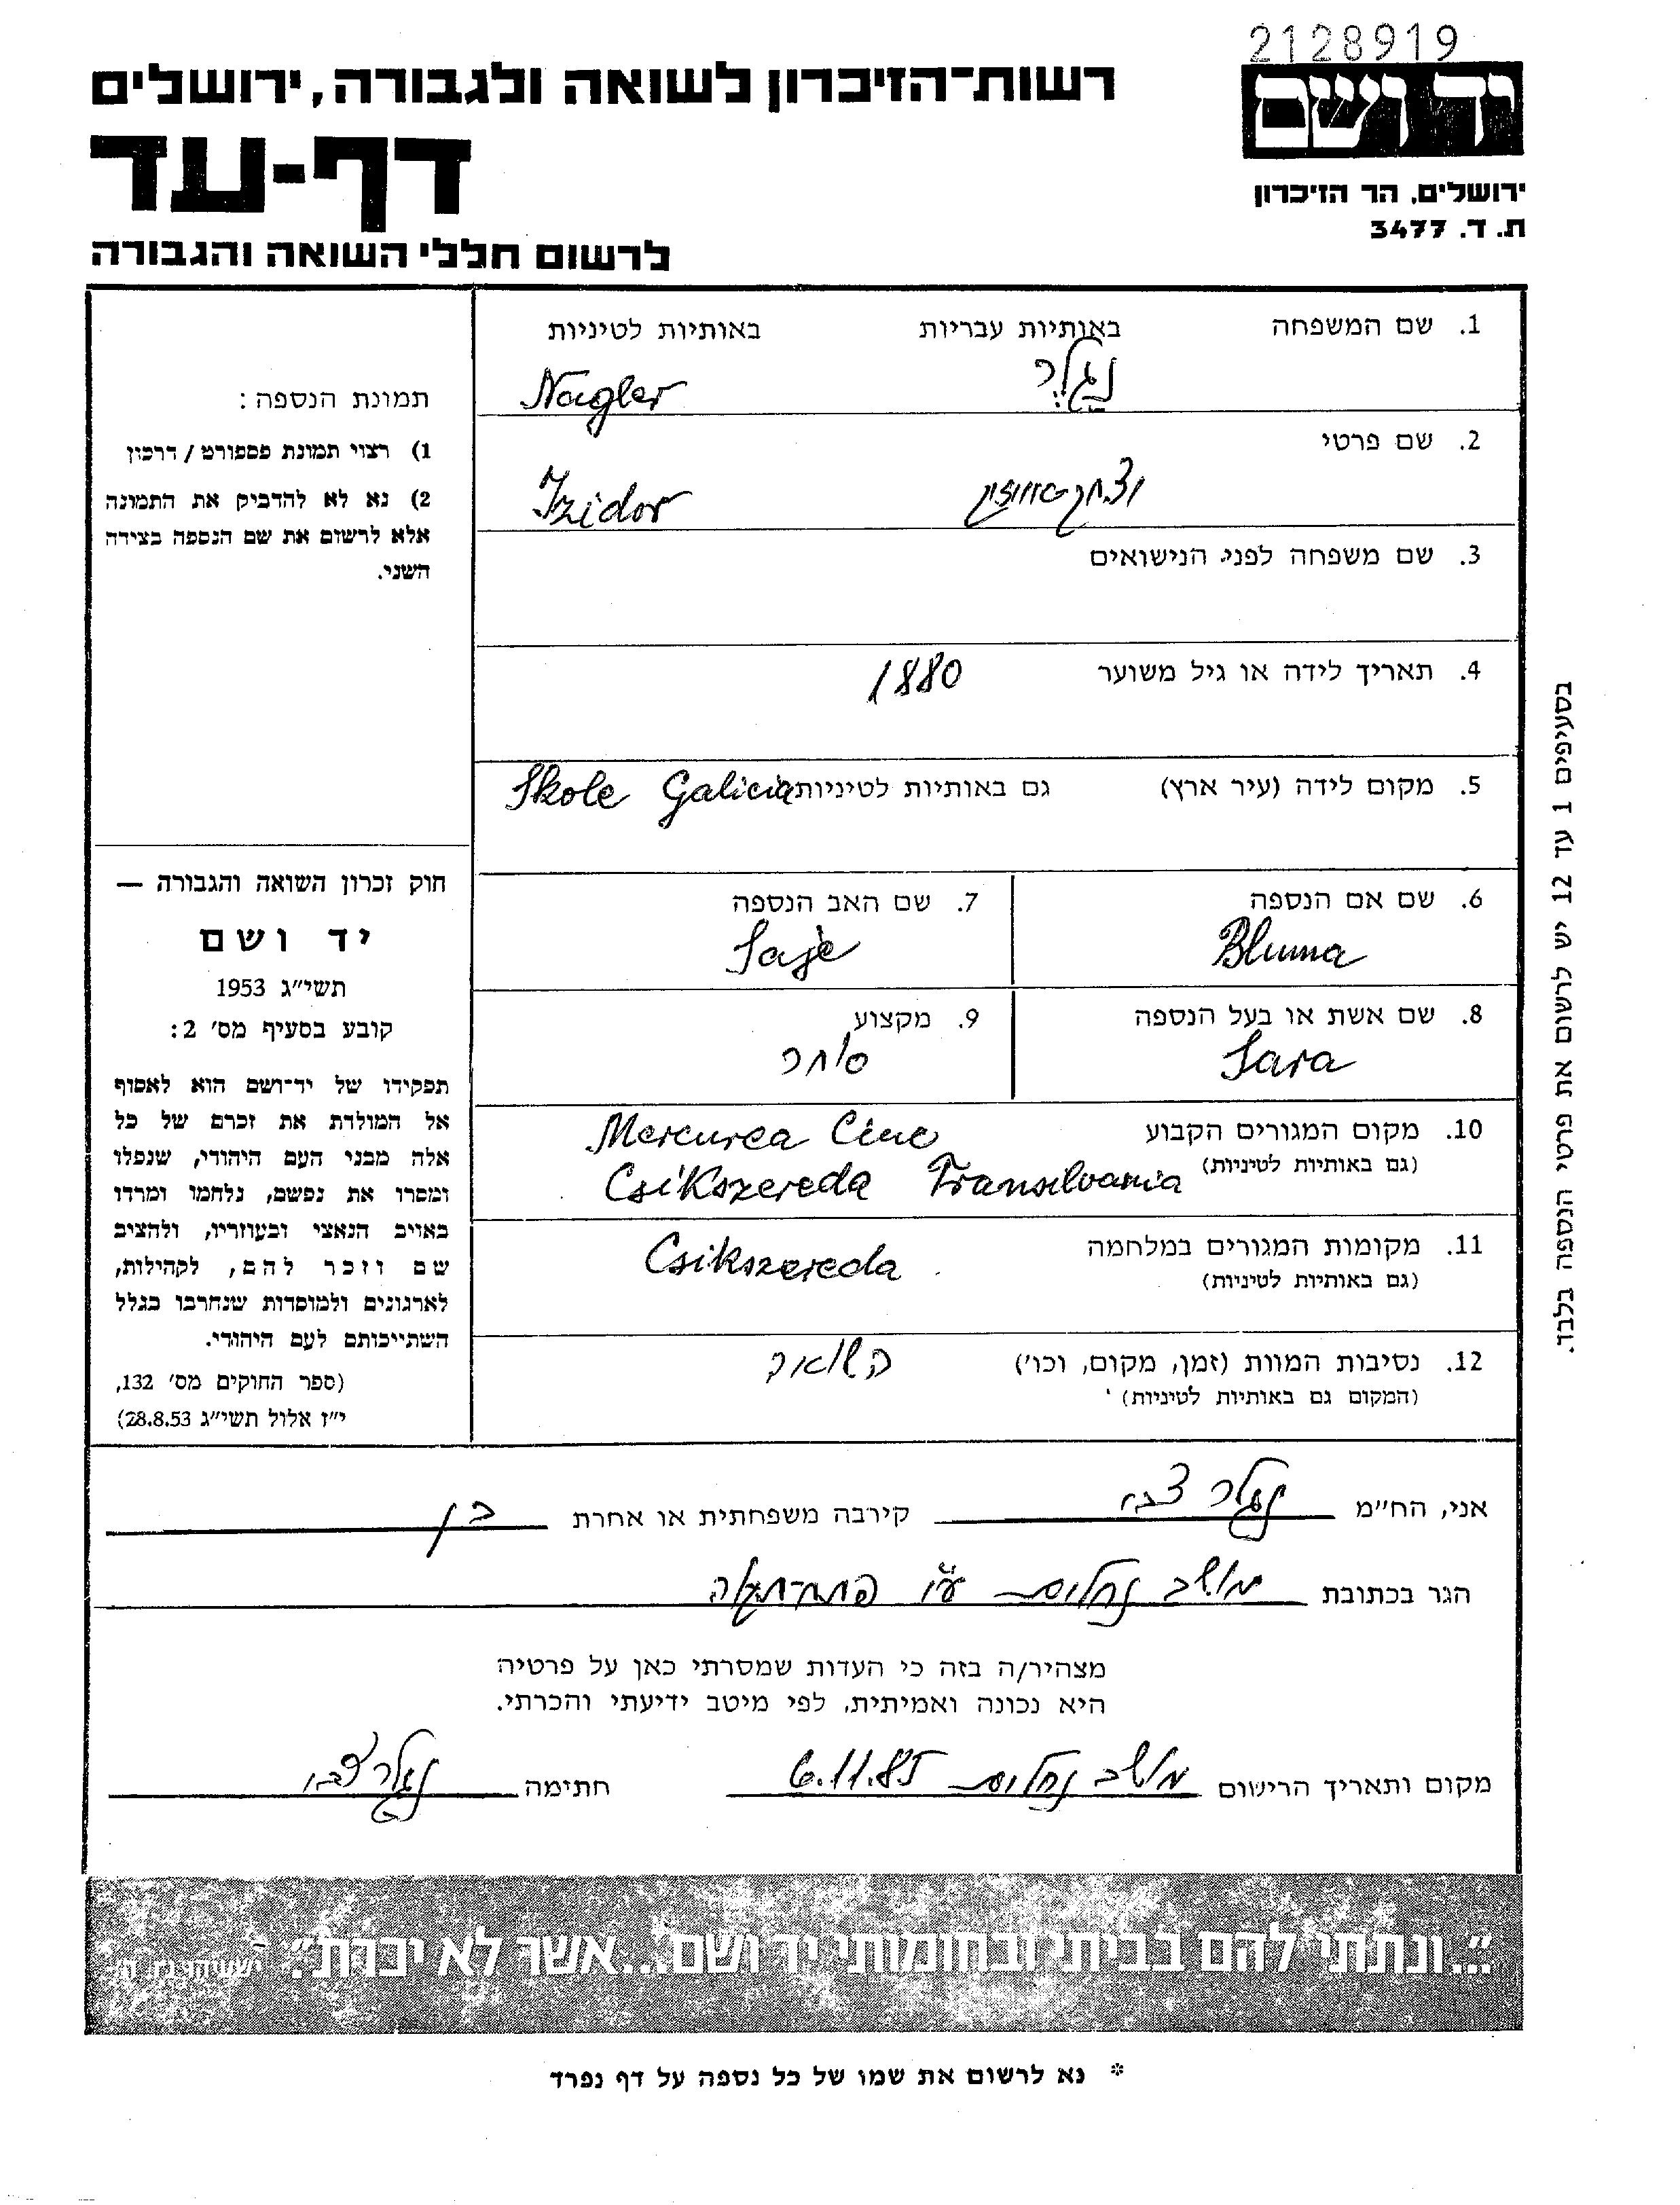 2128919
יד ושם
ירושלים, הר הזיכרון
ת. ד. 3477
רשות-הזיכרון לשואה ולגבורה, ירושלים
דף-עד
לרשום חללי השואה והגבורה
1. שם המשפחה באותיות עבריות באותיות לטיניות
נגלר Nagler
2. שם פרטי
יצחק Izidor
3. שם משפחה לפני הנישואים
4. תאריך לידה או גיל משוער 1880
5. מקום לידה (עיר ארץ) גם באותיות לטיניות Skole Galicia
6. שם אם הנספה 7. שם האב הנספה
Bluma Saje
8. שם אשת או בעל הנספה 9. מקצוע
Sara סוחר
10. מקום המגורים הקבוע Mercurea Ciuc
(גם באותיות לטיניות) Csikszereda Transilvania
11. מקומות המגורים במלחמה Csikszereda
(גם באותיות לטיניות)
12. נסיבות המוות (זמן, מקום, וכו') השואה
(המקום גם באותיות לטיניות)
תמונת הנספה:
1) רצוי תמונת פספורט / דרכון
2) נא לא להדביק את התמונה
אלא לרשום את שם הנספה בצידה
השני.
חוק זכרון השואה והגבורה —
יד ושם
תשי"ג 1953
קובע בסעיף מס' 2:
תפקידו של יד-ושם הוא לאסוף
אל המולדת את זכרם של כל
אלה מבני העם היהודי, שנפלו
ומסרו את נפשם, נלחמו ומרדו
באויב הנאצי ובעוזריו, ולהציב
שם וזכר להם, לקהילות,
לארגונים ולמוסדות שנחרבו בגלל
השתייכותם לעם היהודי.
(ספר החוקים מס' 132,
י"ז אלול תשי"ג 28.8.53)
בסעיפים 1 עד 12 יש לרשום את פרטי הנספה בלבד.
אני, הח"מ נגלר צבי קירבה משפחתית או אחרת בן
הגר בכתובת מושב נחלים ע"י פתח-תקוה
מצהיר/ה בזה כי העדות שמסרתי כאן על פרטיה
היא נכונה ואמיתית, לפי מיטב ידיעתי והכרתי.
מקום ותאריך הרישום מושב נחלים 6.11.85 חתימה נגלר צבי
"...ונתתי להם בביתי ובחומותי יד ושם...אשר לא יכרת" ישעיהו נו, ה'
* נא לרשום את שמו של כל נספה על דף נפרד